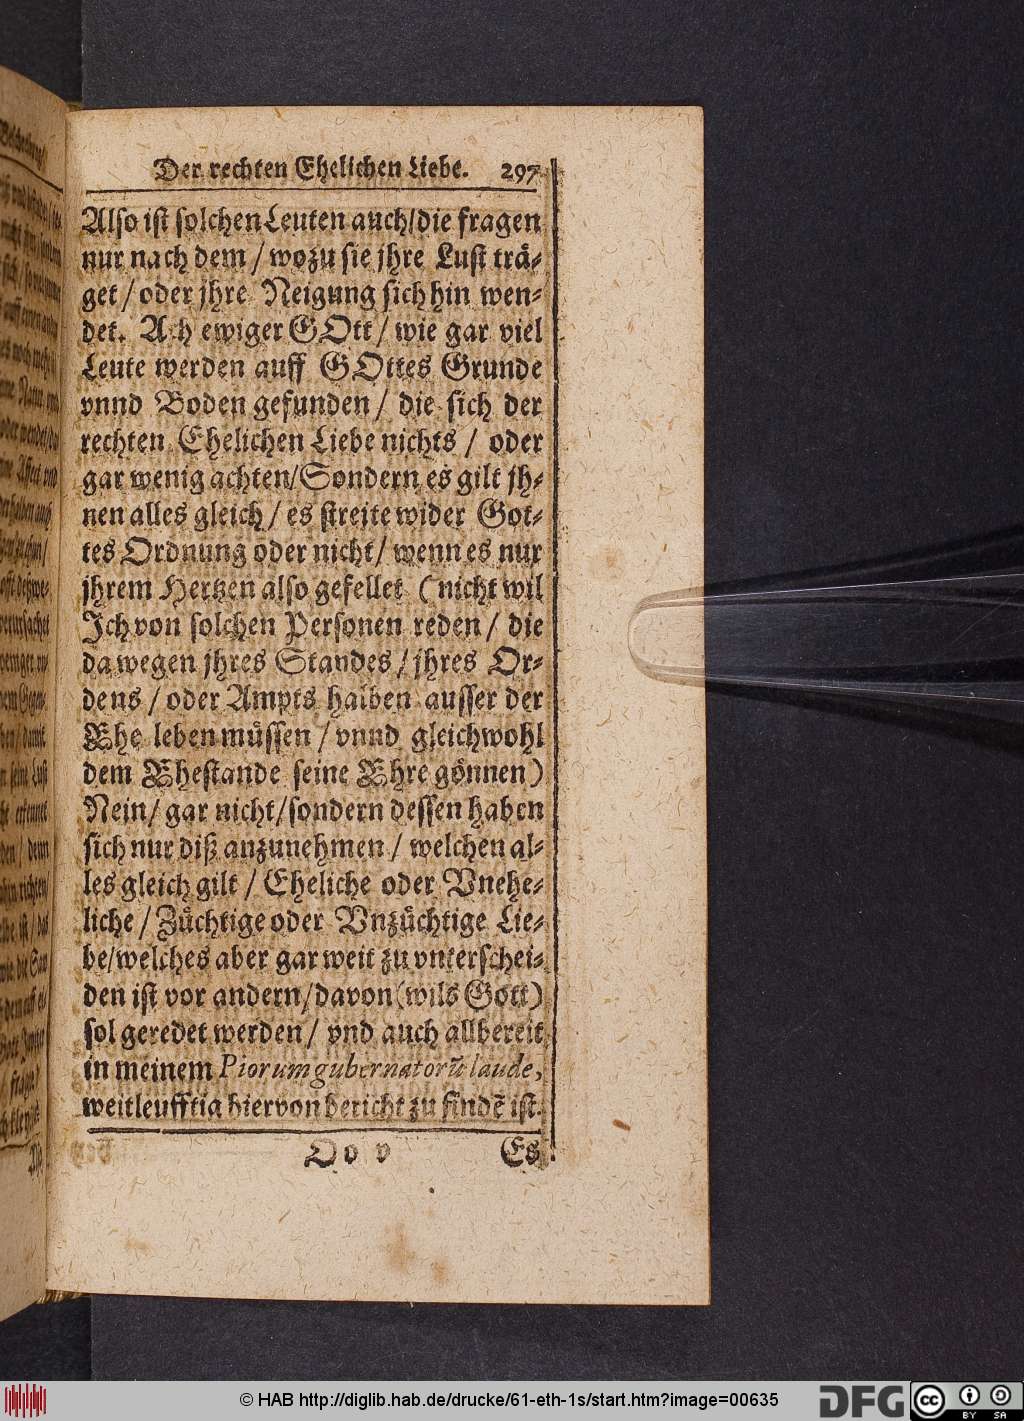 Der rechten Ehelichen Liebe. 297
Also ist solchen Leuten auch/die fragen
nur nach dem / wozu sie jhre Lust trä-
get / oder jhre Neigung sich hin wen-
det. Ach ewiger GOtt / wie gar viel
Leute werden auff GOttes Grunde
vnnd Boden gefunden / die sich der
rechten Ehelichen Liebe nichts / oder
gar wenig achten/Sondern es gilt jh-
nen alles gleich / es streite wider Got-
tes Ordnung oder nicht / wenn es nur
jhrem Hertzen also gefellet ( nicht wil
Ich von solchen Personen reden / die
da wegen jhres Standes / jhres Or-
dens / oder Ampts halben ausser der
Ehe leben müssen / vnnd gleichwohl
dem Ehestande seine Ehre gönnen )
Nein / gar nicht/sondern dessen haben
sich nur diß anzunehmen / welchen al-
les gleich gilt / Eheliche oder Vnehe-
liche / Züchtige oder Vnzüchtige Lie-
be/welches aber gar weit zu vnterschei-
den ist vor andern/davon (wils Gott)
sol geredet werden / vnd auch allbereit
in meinem Piorum gubernatorũ laude,
weitleufftig hiervon bericht zu findẽ ist.
Oo v Es
© HAB http://diglib.hab.de/drucke/61-eth-1s/start.htm?image=00635
DFG
cc
BY SA